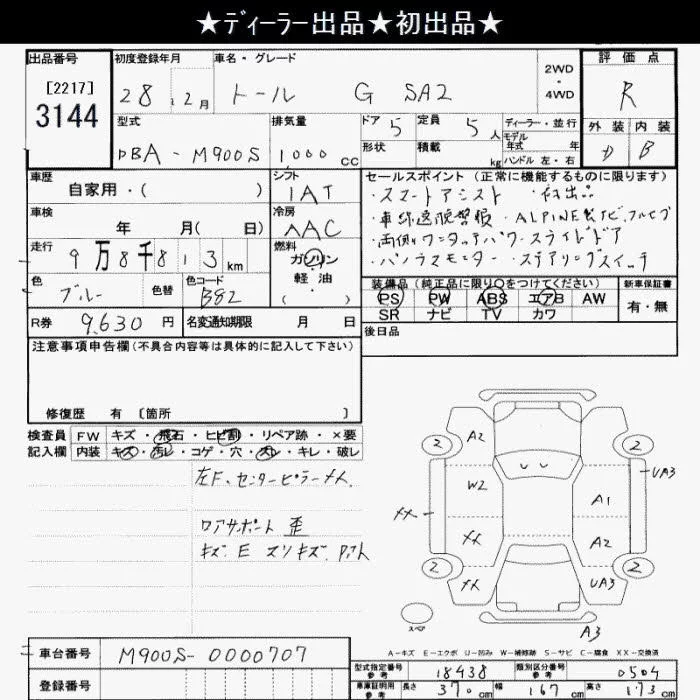 ★ディーラー出品★初出品★
出品番号
[2217]
3144
初度登録年月
28 年 2月
車名・グレード
トール G SA2
2WD
・
4WD
評価点
R
外装 内装
D B
型式
DBA - M900S
排気量
1,000 cc
ドア 5
形状
定員 5 人
積載 kg
ディーラー・並行
モデル年式 年
ハンドル 左・右
車歴
自家用・( )
シフト
IAT
車検
年 月( 日)
冷房
AAC
走行
9万8千813 km
燃料
ガソリン
軽油
( )
色
ブルー
色替
色コード
B82
R券 9,630 円
名変通知期限 月 日
セールスポイント (正常に機能するものに限ります)
・スマートアシスト ・禁出品
・車線逸脱警報 ・ALPINE製ナビ、フルセグ
・両側ワンタッチパワースライドドア
・パノラマモニター ・ステアリングスイッチ
装備品(純正品に限り○をつけてください)
新車保証書
PS PW ABS エアB AW
SR ナビ TV カワ
有・無
後日品
注意事項申告欄(不具合内容等は具体的に記入して下さい)
修復歴 有 〔箇所 〕
検査員
記入欄
FW キズ・飛石・ヒビ割・リペア跡・×要
内装 キズ・汚レ・コゲ・穴・スレ・キレ・破レ
左F、センターピラーメX
コアサポート 歪
キズ E スリキズ
2
A2
2
UA3
W2
A1
XX
XX
A2
2
XX
UA3
2
スペア
A3
A-キズ E-エクボ U-凹み W-補修跡 S-サビ C-腐食 XX-交換済
車台番号
M900S-0000707
登録番号
型式指定番号
参考
18438
類別区分番号
参考
0504
車庫証明用
参考
長さ 370 cm
幅 167 cm
高さ 173 cm